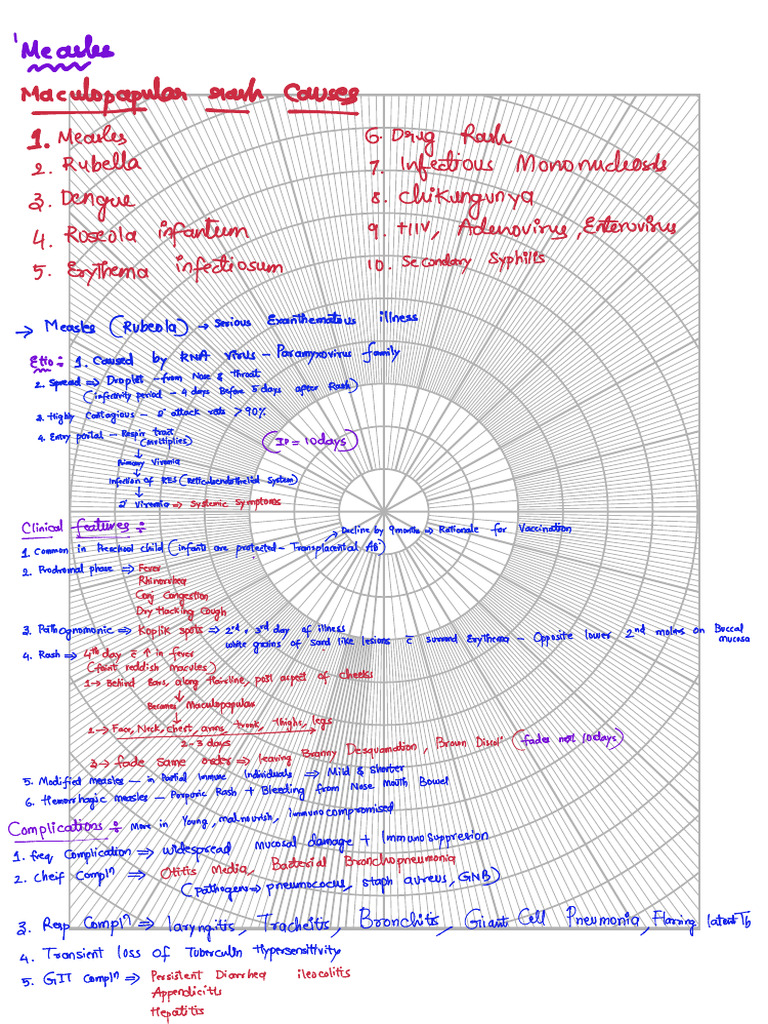 Measles
Maculopapular rash Causes
1. Measles
2. Rubella
3. Dengue
4. Roseola infantum
5. Erythema infectiosum
6. Drug Rash
7. Infectious Mononucleosis
8. Chikungunya
9. HIV, Adenovirus, Enterovirus
10. Secondary Syphilis
→ Measles (Rubeola) → Serious Exanthematous illness
Etio: 1. Caused by RNA virus - Paramyxovirus family
2. Spread ⇒ Droplet - from Nose & throat
(infectivity period - 4 days Before 5 days after Rash)
3. Highly Contagious - 2° attack rate > 90%
4. Entry portal - Respir tract
(multiplies)
(IP = 10 days)
↓
Primary Viremia
↓
Infection of RES (Reticuloendothelial System)
↓
2° Viremia ⇒ Systemic Symptoms
Clinical features :
Decline by 9 months ⇒ Rationale for Vaccination
1. Common in Preschool child (infants are protected - Transplacental Ab)
2. Prodromal phase ⇒ Fever
Rhinorrhea
Conj Congestion
Dry Hacking Cough
3. Pathognomonic ⇒ Koplik spots ⇒ 2nd, 3rd day of illness
white grains of Sand like lesions c̄ surround Erythema - Opposite lower 2nd molars on Buccal mucosa
4. Rash ⇒ 4th day c̄ ↑ in fever
(faint reddish macules)
1→ Behind Ears, along Hairline, post aspect of cheeks
↓
Becomes Maculopapular
↓
2→ Face, Neck, chest, arms, trunk, thighs, legs
2-3 days
3→ fade Same order ⇒ leaving Branny Desquamation, Brown Discol' (fades next 10 days)
5. Modified measles - in Partial Immune Individuals ⇒ Mild & Shorter
6. Hemorrhagic measles - Purpuric Rash + Bleeding from Nose Mouth Bowel
Complications : More in Young, malnourish, immunocompromised
1. freq Complication ⇒ widespread mucosal damage + Immuno Suppresion
2. Cheif Compln ⇒ Otitis Media, Bacterial Bronchopneumonia
(pathogen ⇒ pneumococus, staph aureus, GNB)
3. Resp Compln ⇒ laryngitis, Tracheitis, Bronchitis, Giant Cell Pneumonia, Flaring latent Tb
4. Transient loss of Tuberculin Hypersensitivity
5. GIT Compln ⇒ Persistent Diarrhea ileocolitis
Appendicitis
Hepatitis